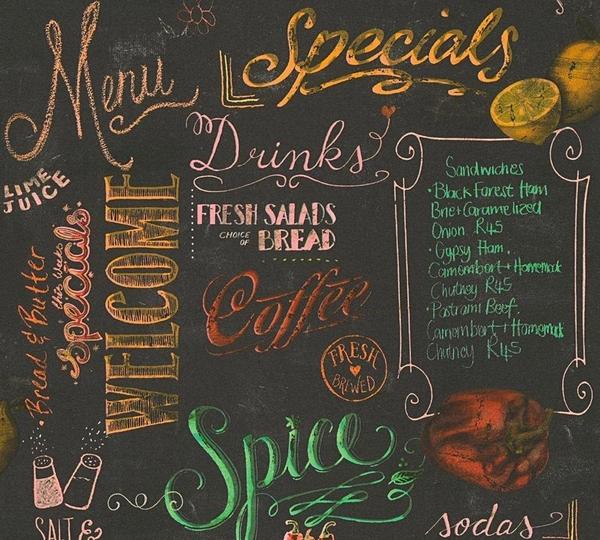 Menu
Specials
Drinks
LIME
JUICE
FRESH SALADS
CHOICE
OF
BREAD
WELCOME
this Weeks
Specials
Bread & Butter
Coffee
FRESH
BREWED
Sandwiches
• Black Forest Ham
Brie + Caramelized
Onion R45
• Gypsy Ham,
Camembert + Homemade
Chutney R45
• Pastrami Beef
Camembert + Homemade
Chutney R45
Spice
SALT &
sodas